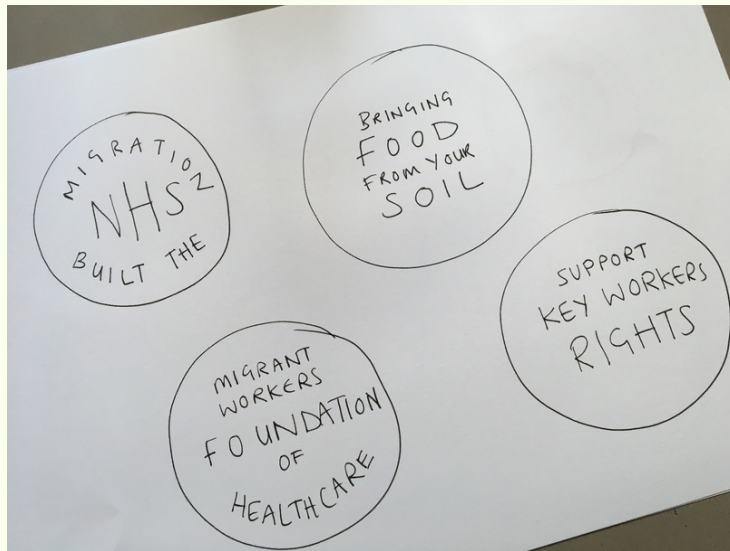 MIGRATION
NHS
BUILT THE
BRINGING
FOOD
FROM YOUR
SOIL
SUPPORT
KEY WORKERS
RIGHTS
MIGRANT
WORKERS
FOUNDATION
OF
HEALTHCARE